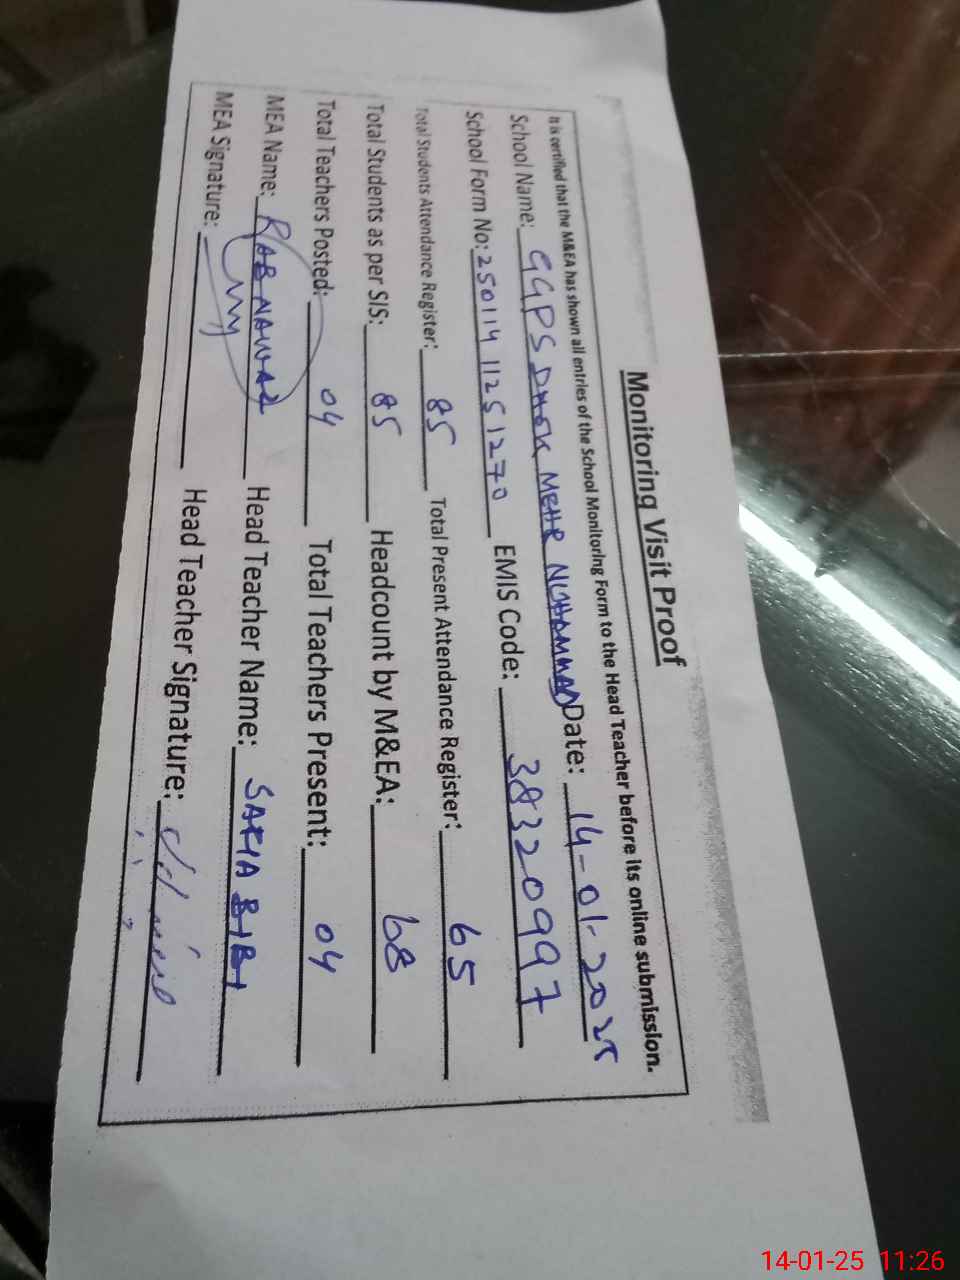 Monitoring Visit Proof
It is certified that the M&EA has shown all entries of the School Monitoring Form to the Head Teacher before its online submission.
School Name: GGPS DHOK MEHR MUHAMMAD Date: 14-01-2025
School Form No: 25011411251270 EMIS Code: 38320997
Total Students Attendance Register: 85 Total Present Attendance Register: 65
Total Students as per SIS: 85 Headcount by M&EA: 68
Total Teachers Posted: 04 Total Teachers Present: 04
MEA Name: RAB NAWAZ Head Teacher Name: SAFIA BIBI
MEA Signature: Head Teacher Signature:
14-01-25 11:26